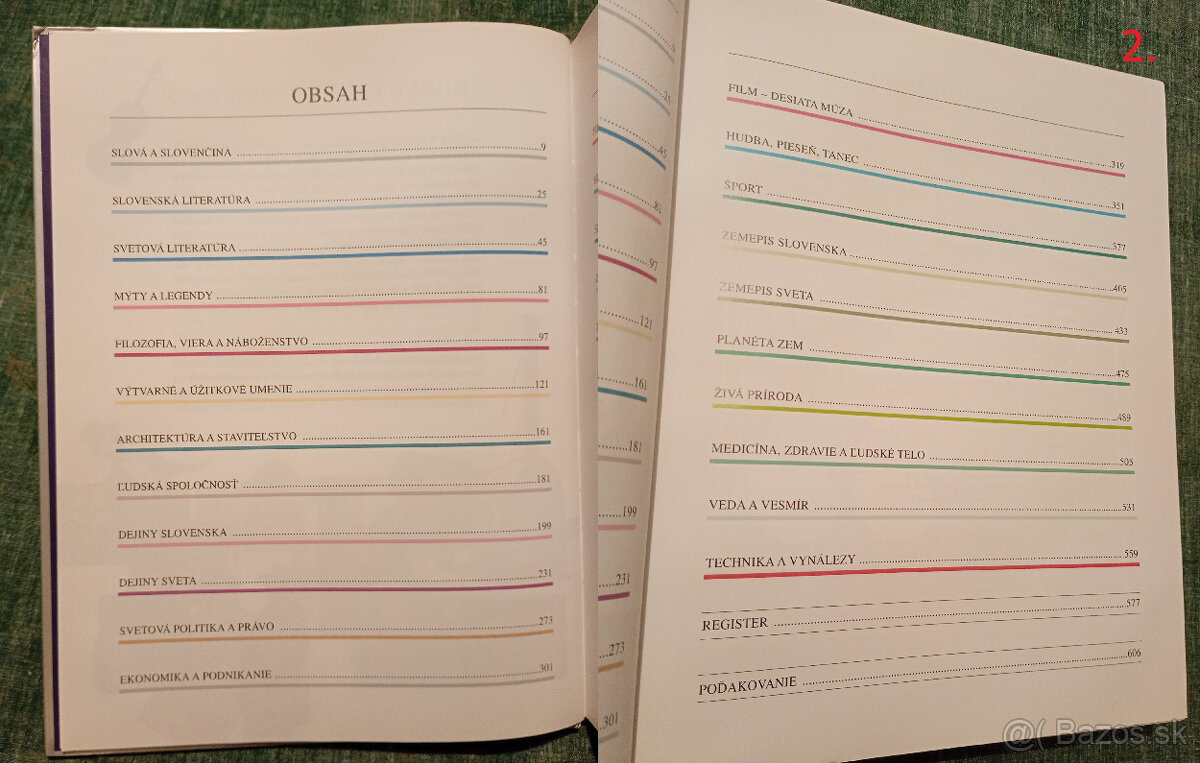 OBSAH
SLOVÁ A SLOVENČINA ........ 9
SLOVENSKÁ LITERATÚRA ........ 25
SVETOVÁ LITERATÚRA ........ 45
MÝTY A LEGENDY ........ 81
FILOZOFIA, VIERA A NÁBOŽENSTVO ........ 97
VÝTVARNÉ A ÚŽITKOVÉ UMENIE ........ 121
ARCHITEKTÚRA A STAVITEĽSTVO ........ 161
ĽUDSKÁ SPOLOČNOSŤ ........ 181
DEJINY SLOVENSKA ........ 199
DEJINY SVETA ........ 231
SVETOVÁ POLITIKA A PRÁVO ........ 273
EKONOMIKA A PODNIKANIE ........ 301
25
45
81
97
121
161
181
199
231
273
301
2.
FILM – DESIATA MÚZA ........ 319
HUDBA, PIESEŇ, TANEC ........ 351
ŠPORT ........ 377
ZEMEPIS SLOVENSKA ........ 405
ZEMEPIS SVETA ........ 433
PLANÉTA ZEM ........ 475
ŽIVÁ PRÍRODA ........ 489
MEDICÍNA, ZDRAVIE A ĽUDSKÉ TELO ........ 505
VEDA A VESMÍR ........ 531
TECHNIKA A VYNÁLEZY ........ 559
REGISTER ........ 577
POĎAKOVANIE ........ 606
@( Bazos.sk